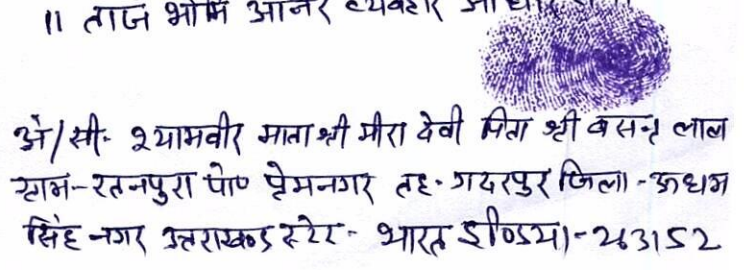 ॥ ताज भूमि आनर व्यवहार
अे/सी. श्यामवीर माता श्री मीरा देवी पिता श्री बसन्त लाल
ग्राम-रतनपुरा पो० प्रेमनगर तह. गदरपुर जिला-ऊधम
सिंह नगर उत्तराखण्ड स्टेट- भारत इण्डिया-263152